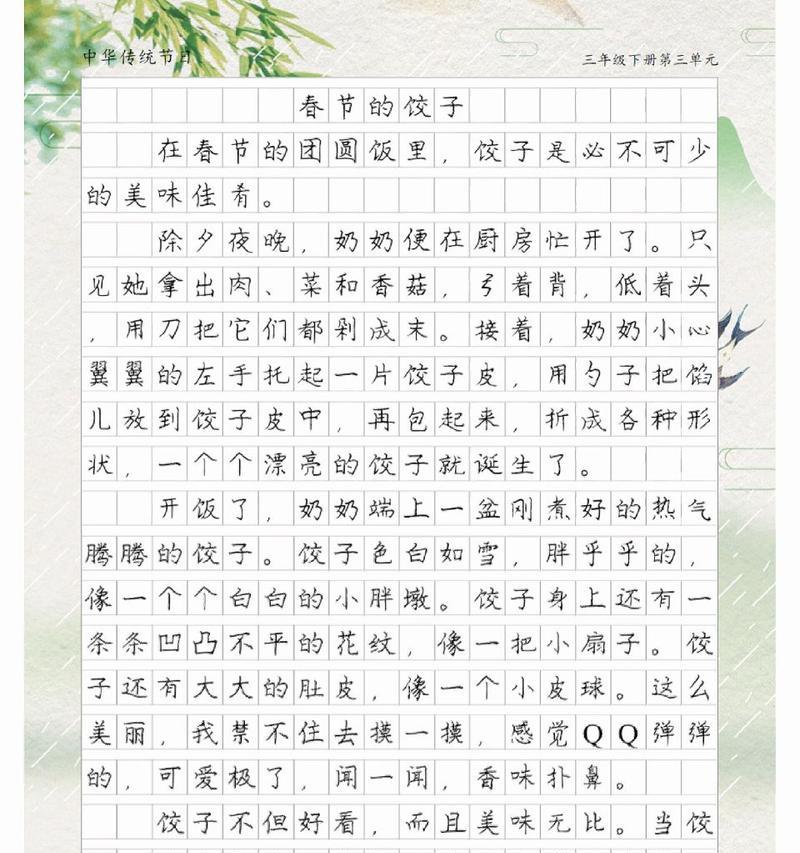 中华传统节日
三年级下册第三单元
春节的饺子
在春节的团圆饭里，饺子是必不可少
的美味佳肴。
除夕夜晚，奶奶便在厨房忙开了。只
见她拿出肉、菜和香菇，弓着背，低着头
，用刀把它们都剁成末。接着，奶奶小心
翼翼的左手托起一片饺子皮，用勺子把馅
儿放到饺子皮中，再包起来，折成各种形
状，一个个漂亮的饺子就诞生了。
开饭了，奶奶端上一盆刚煮好的热气
腾腾的饺子。饺子色白如雪，胖乎乎的，
像一个个白白的小胖墩。饺子身上还有一
条条凹凸不平的花纹，像一把小扇子。饺
子还有大大的肚皮，像一个小皮球。这么
美丽，我禁不住去摸一摸，感觉QQ弹弹
的，可爱极了，闻一闻，香味扑鼻。
饺子不但好看，而且美味无比。当饺